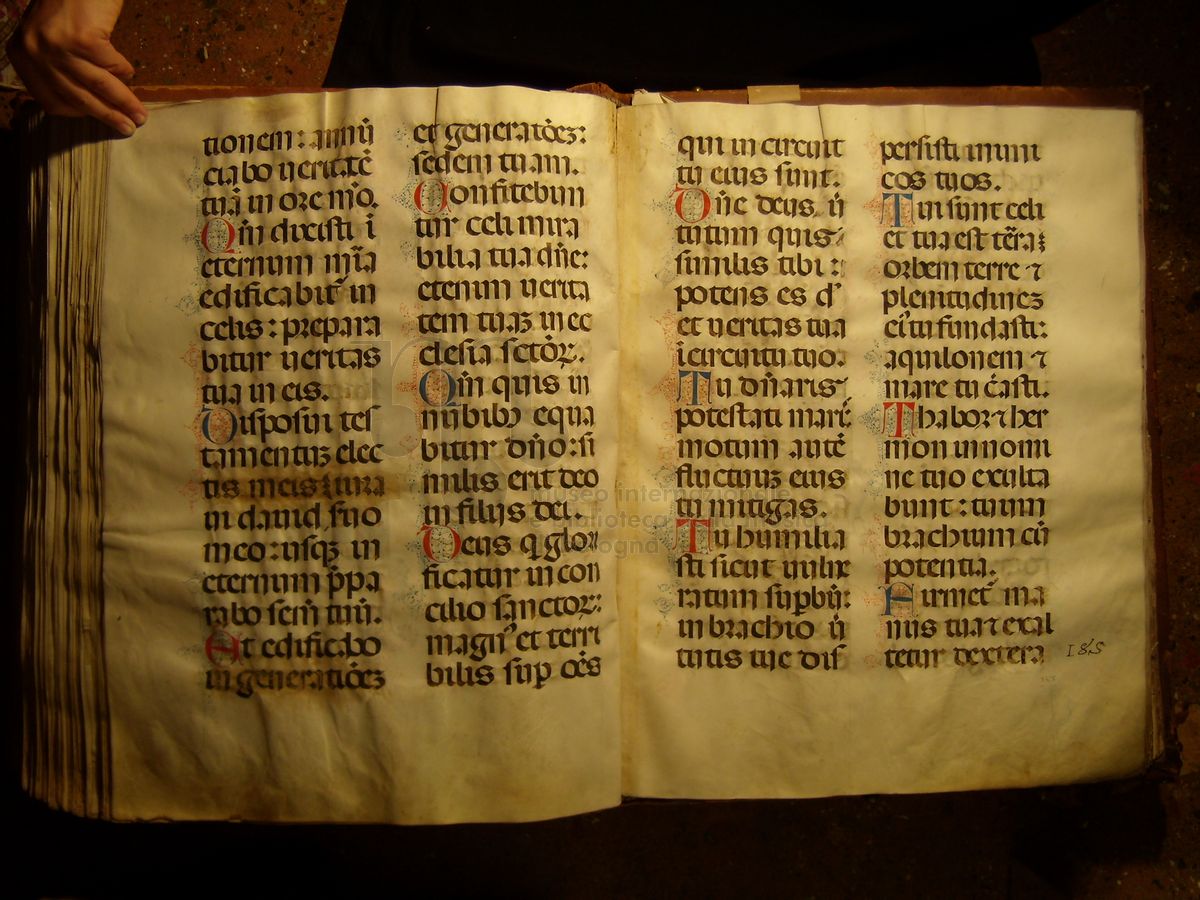 tionem: annū
ciabo ueritatē
tuā in ore m̄o.
Qm̄ dixisti ī
eternum mīa
edificabit̄ in
celis: prepara
bitur ueritas
tua in eis.
Disposui tes
tamentuꝫ elec
tis meis iura
ui dauid suo
meo: usqꝫ in
eternum p̄pa
rabo sem̄ tuū.
Et edificabo
in generatiōeꝫ
et generatōeꝫ:
sedem tuam.
Confitebun
tur celi mira
bilia tua dn̄e:
etenim uerita
tem tuaꝫ in ec
clesia sctōꝝ.
Qm̄ quis in
nūbibꝫ equa
bitur dn̄o: si
milis erit deo
in filijs dei.
Deus q glori
ficatur in con
cilio sanctoꝝ:
magn᷒ et terri
bilis sup oēs
qui in circuit
tu eius sunt.
Dn̄e deus ū
tutum quis
similis tibi:
potens es d᷒
et ueritas tua
ī circuitu tuo.
Tu dn̄aris
potestati marꝭ
motum autē
fluctuuꝫ eius
tu mitigas.
Tu humilia
sti sicut uulne
ratum supbū:
in brachio ū
tutis tue dis
persisti inimi
cos tuos.
Tui sunt celi
et tua est tēra:
orbem terre ⁊
plenitudineꝫ
ei᷒ tu fundasti:
aquilonem ⁊
mare tu c̄asti.
Thabor ⁊ her
mon in nomi
ne tuo exulta
bunt: tuum
brachium cū
potentia.
Firmet᷑ ma
nus tua ⁊ exal
tetur dextera
185
museo internazionale
e biblioteca della musica
di bologna